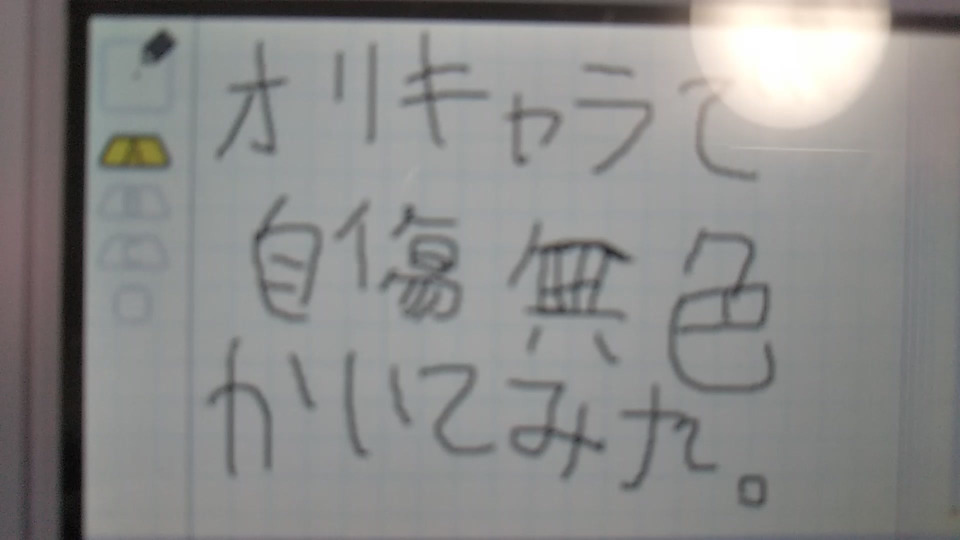 オリキャラで
自傷無色
かいてみた。